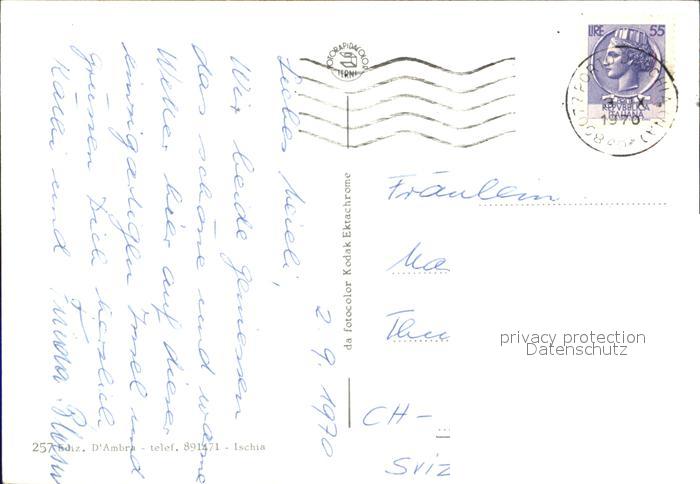 Liebes Meieli,
Wir beide geniessen
das schöne und warme
Wetter hier auf dieser
einzigartigen Insel und
grüssen Dich herzlich,
und Frieda
2.9.1970
257 Ediz. D'Ambra - telef. 891471 - Ischia
da fotocolor Kodak Ektachrome
FOTORAPIDACOLOR
TERNI
LIRE 55
REPVBBLICA
ITALIANA
1970
Fräulein
Ma
Thu
CH-
Sviz
privacy protection
Datenschutz